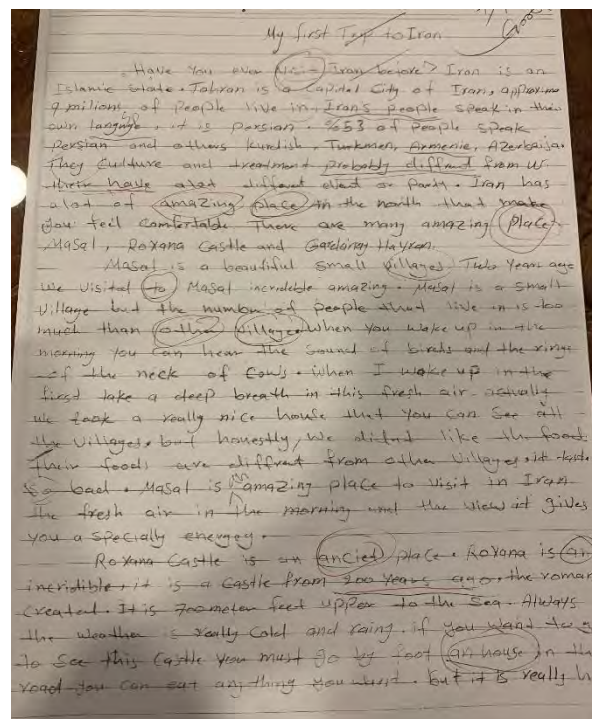 Good
My first Trip to Iran
Have you ever visit Iran before? Iran is an
Islamic State. Tahran is a Capital City of Iran, approxima
9 milions of People live in. Iran's people speak in their
own language, it is persian. %53 of People speak
Persian and others Kurdish, Turkmen, Armenie, Azerbaijan
They Culture and treatment probably diffrent from us.
their have alot different or Party. Iran has
alot of amazing place in the north that make
you feel Comfortable. There are many amazing place
Masal, Roxana Castle and Hayran.
Masal is a beautiful small villages. Two Years ago
We visited to Masal incredeble amazing. Masal is a small
Village but the number of people that live in is too
much than other villages. When you wake up in the
morning You Can hear the Sound of birds and the rings
of the neck of Cows. When I woke up in the
first take a deep breath in this fresh air. actually
we took a really nice house that you can See all
the Villages. but honestly, We didnt like the food.
Their foods are diffrent from other Villages. it taste
so bad. Masal is an amazing place to visit in Iran.
The fresh air in the morning and the view it gives
you a specially energey.
Roxana Castle is an ancied place. Roxana is an
incridible, it is a Castle from 200 years ago. the roman
Created. It is 700 meter feet upper to the Sea. Always
the weather is really Cold and raing. if you want to g
to See this Castle you must go by foot an house in th
road you can eat anything you want. but it is really h